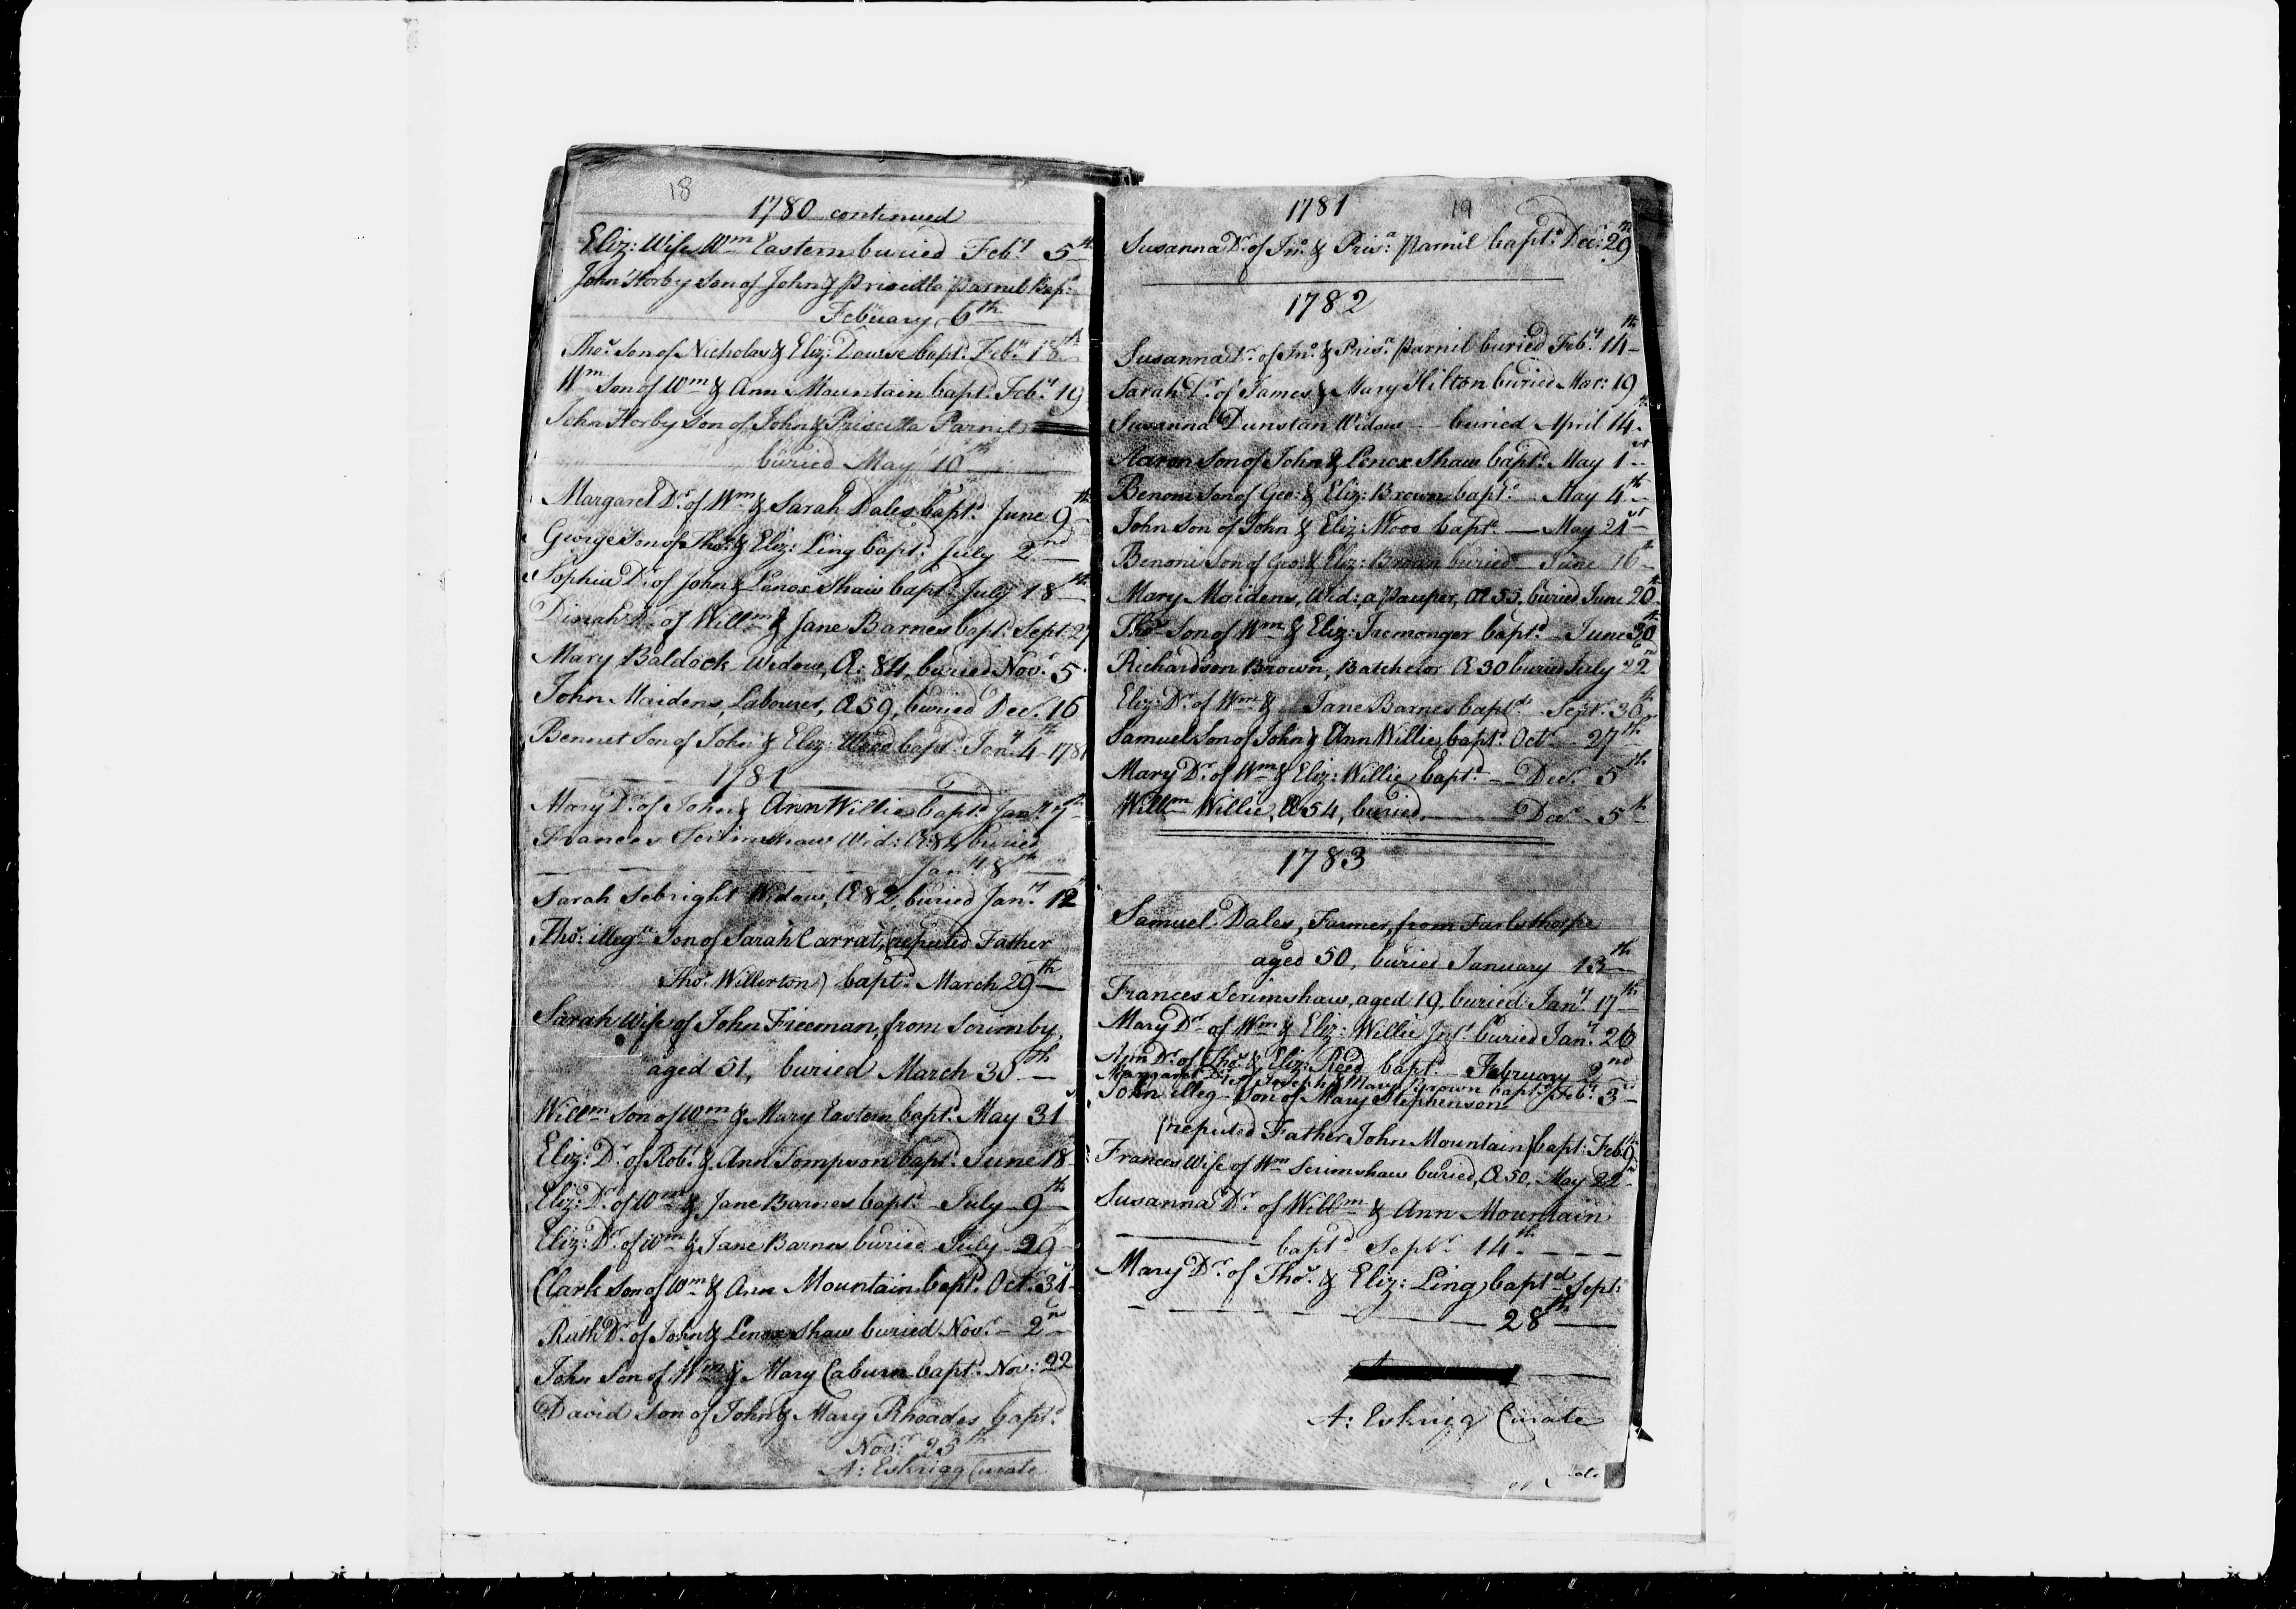 18
1780 continued
Eliz: Wife Wm Eastern buried Feby 5th
John Horby Son of John & Priscilla Parnil Bapd
Febuary 6th
Thos Son of Nicholas & Eliz: Dowse bapt. Feby 18th
Wm Son of Wm & Ann Mountain bapt. Feby 19
John Horby Son of John & Priscilla Parnil
buried May 10th
Margaret Dr. of Wm & Sarah Dales bapt.d June 9th
George Son of Thos. & Eliz: Ling bapt. July 2nd
Sophia Dr. of John & Lenox Shaw bapt. July 18th
Dinah Dr. of Willm & Jane Barnes bapt. Sept. 27
Mary Baldock Widow, A: 84, buried Novr 5
John Maidens, Labourer, A 59, buried Decr 16
Bennet Son of John & Eliz: bapt.d Jany 4th 1781
1781
Mary Dr. of John & Ann Willie bapt.d Jany 7th
Frances Wid: A: 84 buried
Jany 8th
Sarah Sebright Widow, A 82, buried Jany 12
Thos. illegt Son of Sarah Carrat, (reputed Father
Thos. Willerton) bapt.d March 29th
Sarah Wife of John Freeman, from Scrimby,
aged 51, buried March 30th
Willm Son of Wm & Mary Eastern bapt.d May 31
Eliz: Dr. of Robt. & Ann Tompson bapt.d June 18
Eliz: Dr. of Wm & Jane Barnes bapt.d July 9th
Eliz: Dr. of Wm & Jane Barnes buried July 29
Clark Son of Wm & Ann Mountain bapt.d Octr 31
Ruth Dr. of John & Lenox Shaw buried Novr 2nd
John Son of Wm & Mary Caburn bapt.d Nov: 22
David Son of John & Mary Rhoades bapt.d
Novr 25th
A: Eskrigg Curate
1781
19
Susanna Dr. of Jno. & Prisa: Parnil bapt.d Decr 29th
1782
Susanna Dr. of Jno. & Prisa. Parnil buried Feby 14th
Sarah Dr. of James & Mary Hilton buried Mar: 19
Susanna Dunstan Widow buried April 14th
Aaron Son of John & Lenox Shaw bapt.d May 1st
Benoni Son of Geo: & Eliz: Brown bapt.d May 4th
John Son of John & Eliz: bapt.d May 21st
Benoni Son of Geo: & Eliz: Brown buried June 16th
Mary Maidens, Wid: a Pauper, A 55, buried June 20th
Thos. Son of Wm & Eliz: Iremonger bapt.d June 30th
Richardson Brown, Batchelor A 30 buried July 22nd
Eliz: Dr. of Wm & Jane Barnes bapt.d Septr 30th
Samuel Son of John & Ann Willie bapt.d Octr 27th
Mary Dr. of Wm & Eliz: Willie bapt.d Decr 5th
Willm Willie, A 54, buried Decr 5th
1783
Samuel Dales, Farmer, from Farlsthorpe
aged 50, buried January 13th
Frances Scrimshaw, aged 19, buried Jany 17th
Mary Dr. of Wm & Eliz: Willie Inft buried Jany 26
Ann Dr. of Thos. & Eliz: Reed bapt.d February 2nd
Margaret Dr. of Joseph & Mary Brown bapt.d Feby 3rd
John illeg Son of Mary Stephenson
(reputed Father John Mountain) bapt: Feb: 9th
Frances Wife of Wm Scrimshaw buried, A 50, May 22nd
Susanna Dr. of Willm & Ann Mountain
bapt.d Septr 14th
Mary Dr. of Thos. & Eliz: Ling bapt.d Sept:
28th
A: Eskrigg Curate